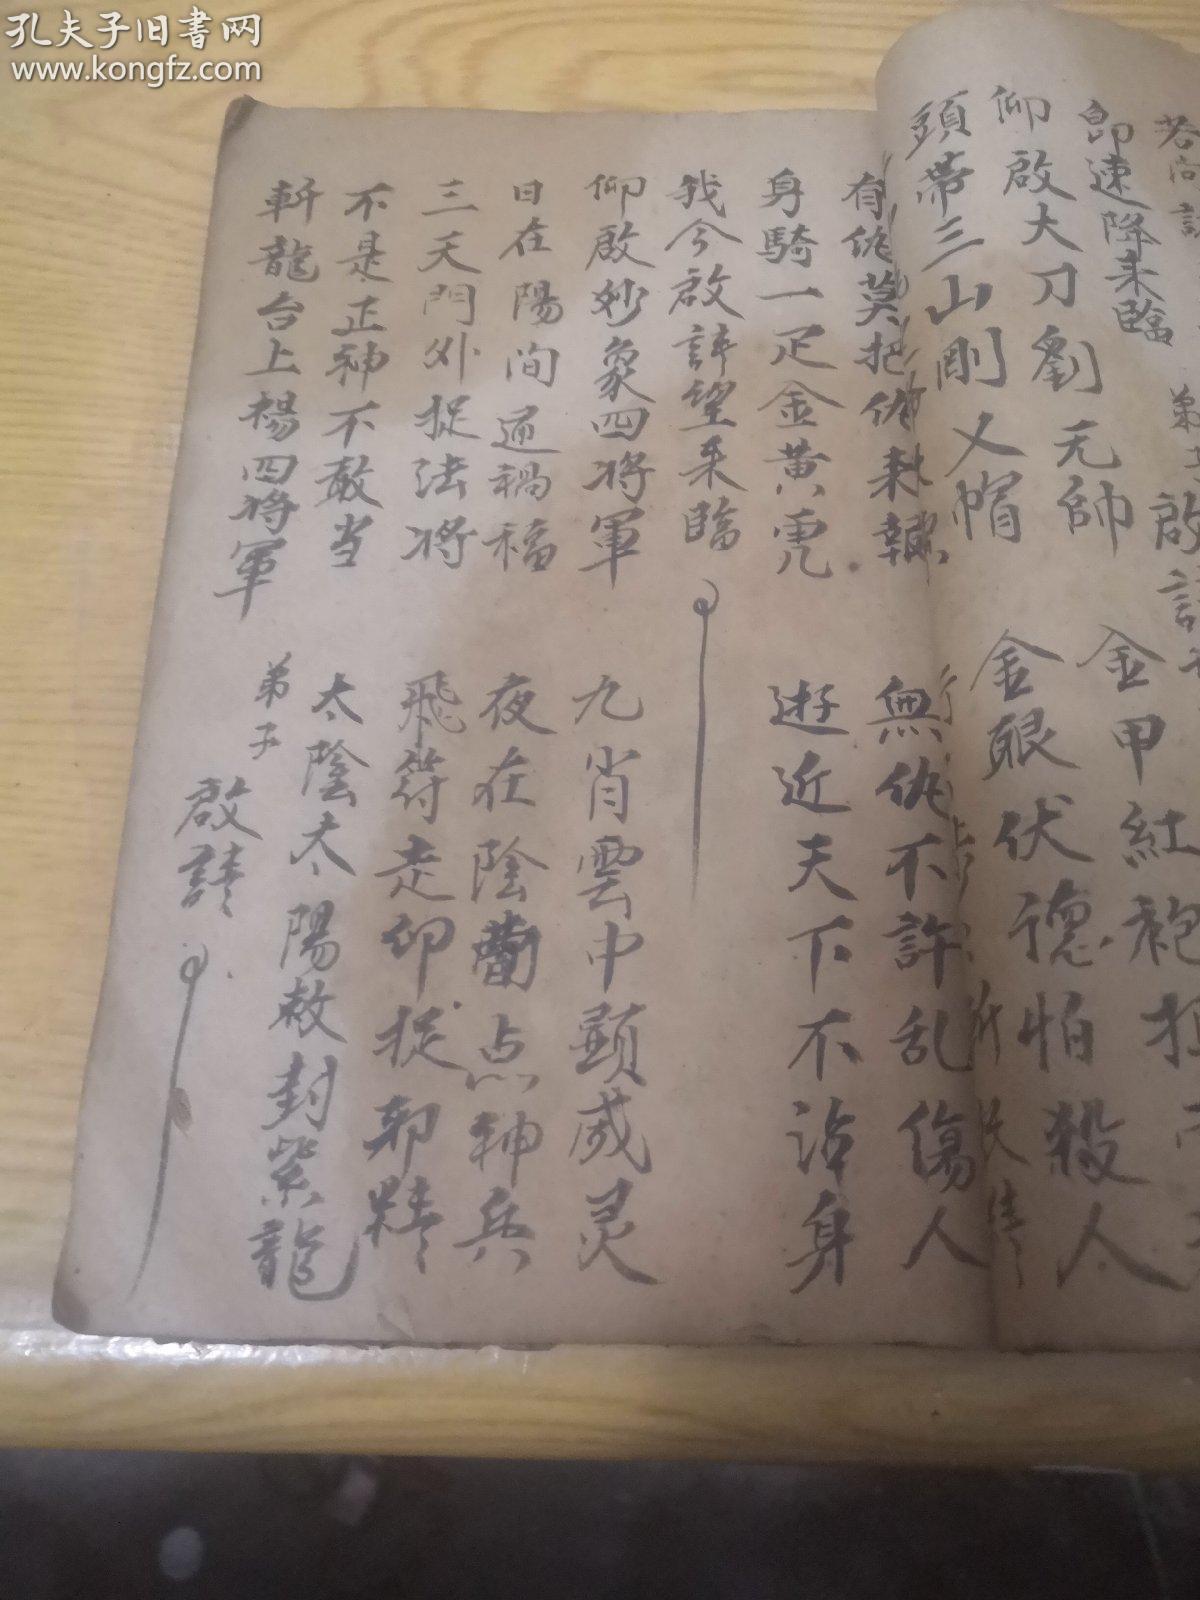 孔夫子旧書网
www.kongfz.com
即速降来臨 弟子 啟請
仰啟大刀劉元帥 金甲紅袍
頭帶三山剛叉帽 金眼伏德怕殺人
有仇莫把仇 無仇不許乱傷人
身騎一疋金黄虎 遊近天下不沾身
我今啟請望来臨
仰啟妙象四将軍 九肖雲中顕威灵
日在陽间通禍福 夜在陰 点神兵
三天門外捉法将 飛符走印捉邪精
不是正神不敢当 太陰太陽敕封紫龍
軒龍台上楊四将軍 弟子 啟請